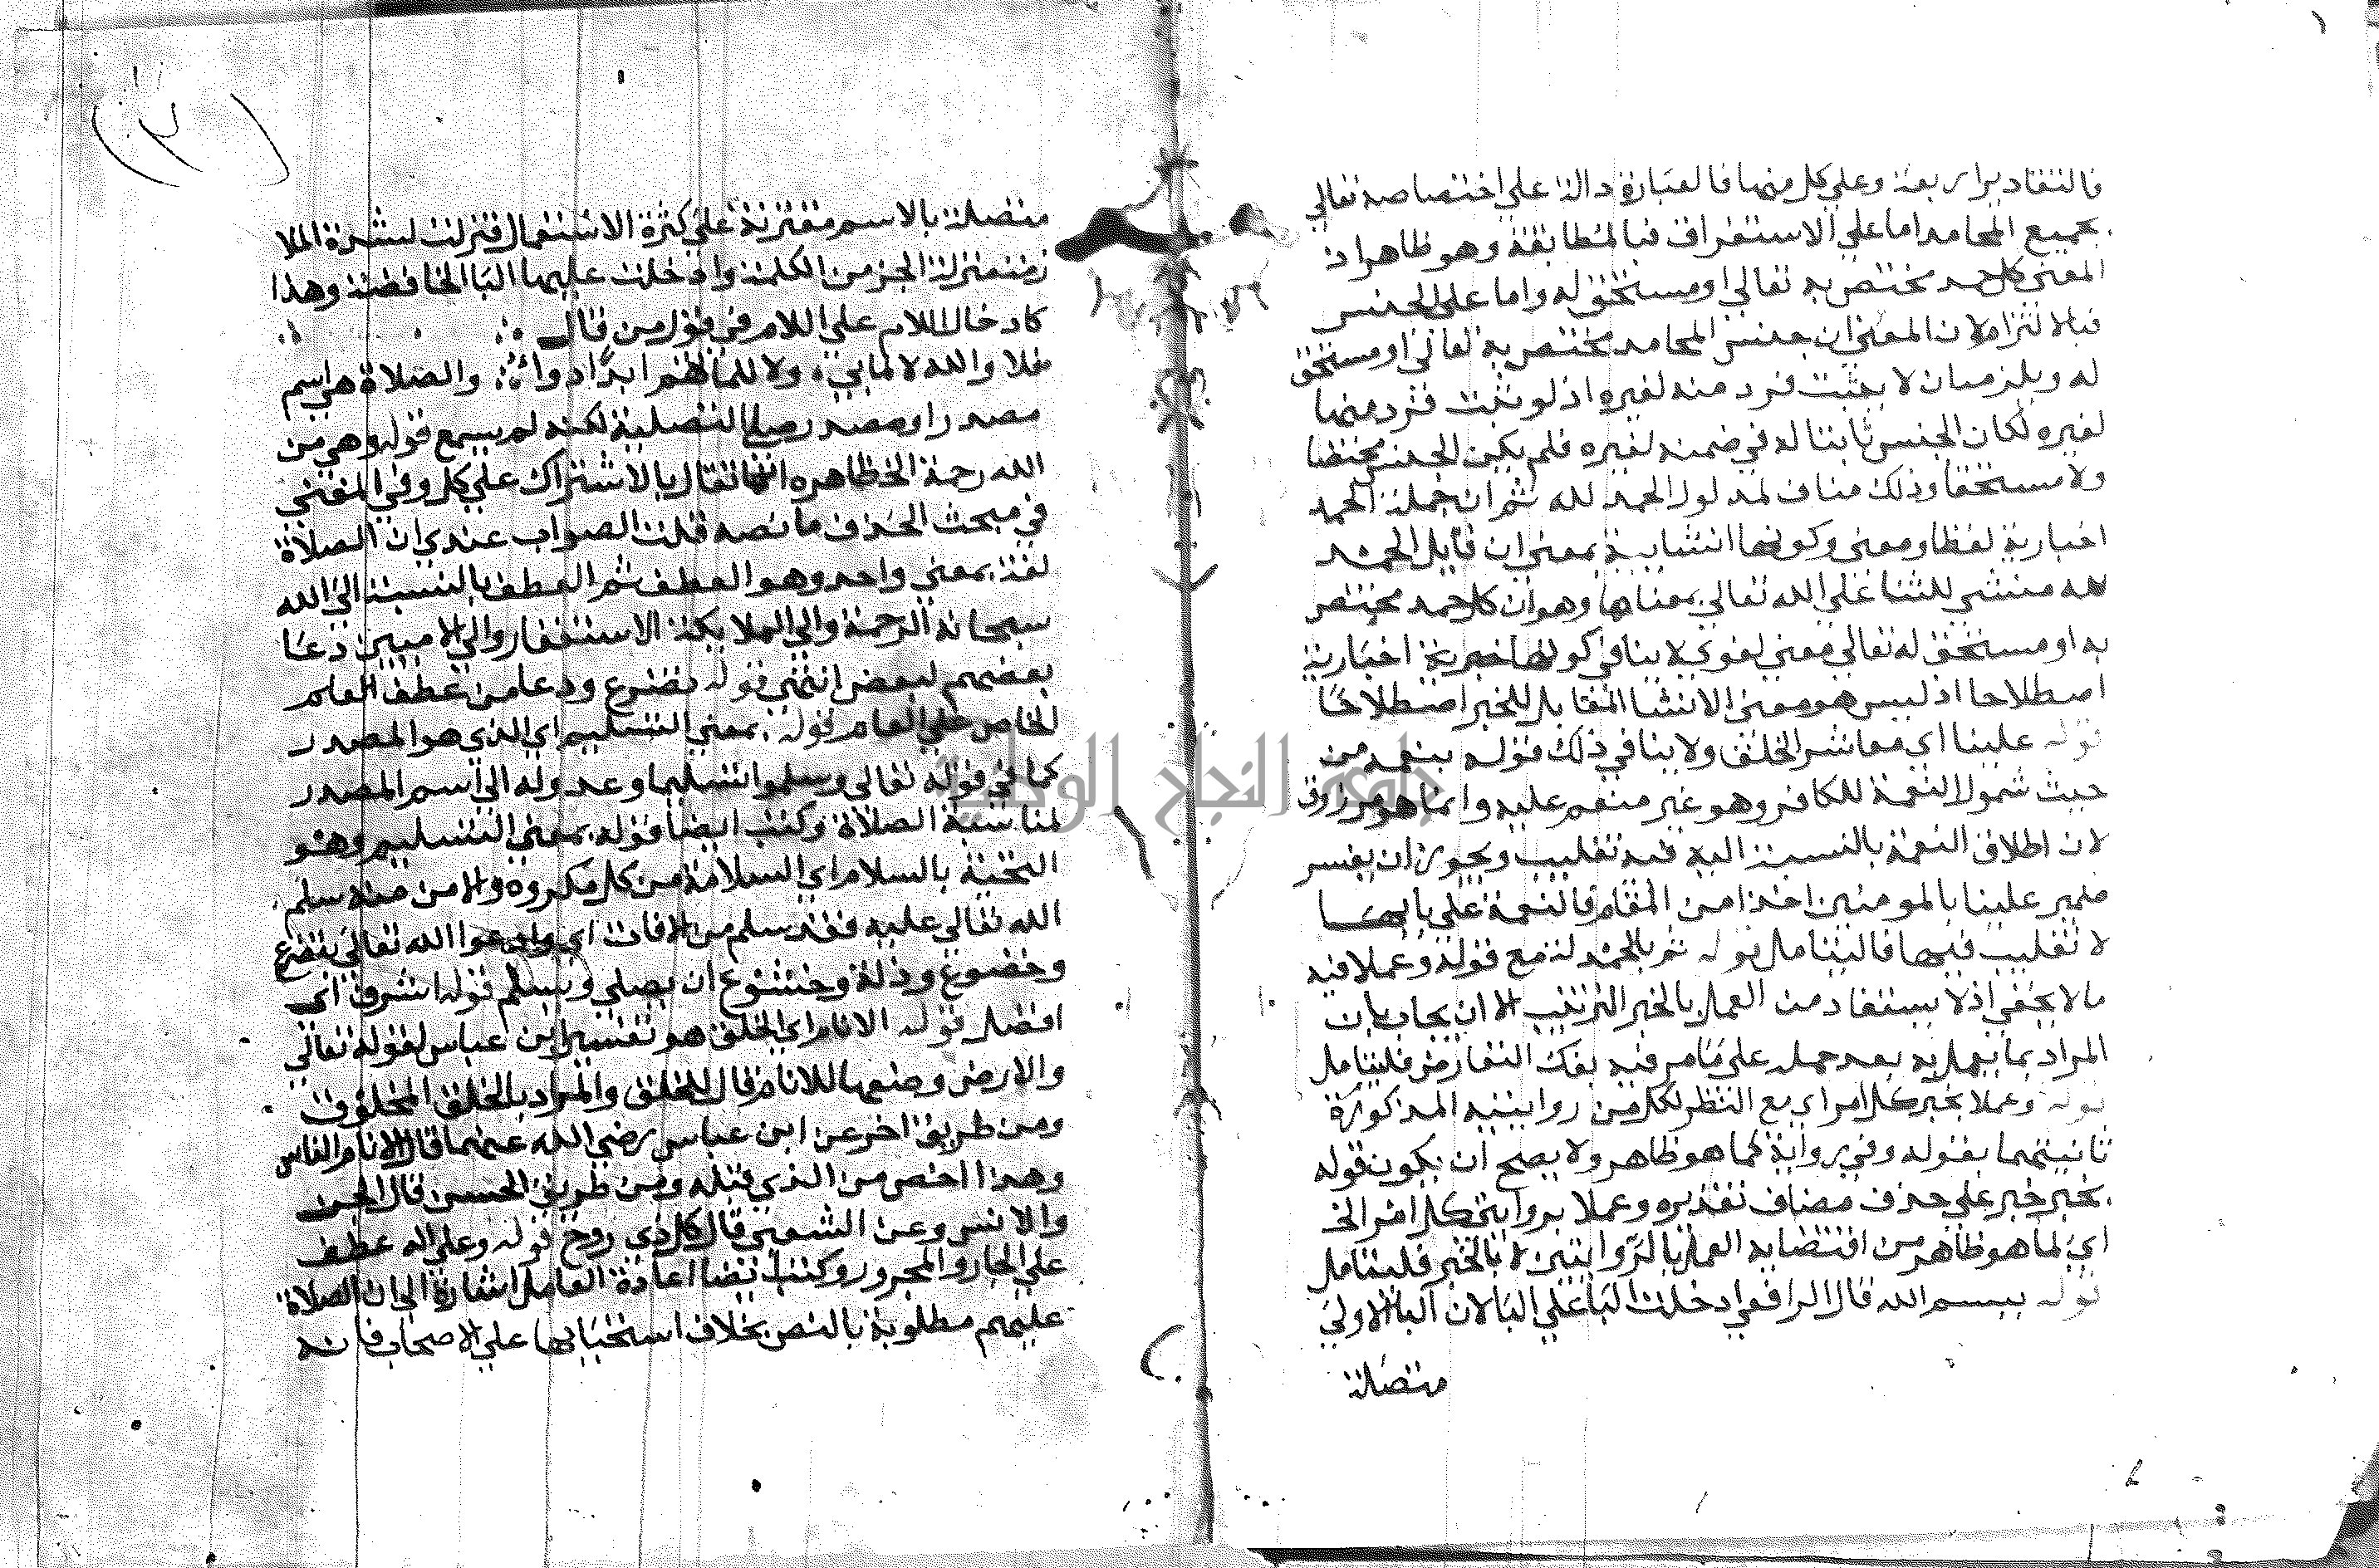 فالتقادير اربعة وعلي كل منها فالعبارة دالة علي اختصاصه تعالي
بجميع المحامد اما علي الاستغراق فبالمطابقة وهو ظاهر اذ
المعني كل حمد مختص به تعالي او مستحق له واما علي الجنس
فبالالتزام لان المعني ان جنس المحامد مختص به تعالي او مستحق
له ويلزم ان لا يثبت فرد منه لغيره اذ لو ثبت فرد منها
لغيره لكان الجنس ثابتا له في ضمنه لغيره فلم يكن الجنس مختصا
ولا مستحقا وذلك مناف لمدلول الحمد لله ثم ان جملة الحمد
اخبارية لفظا ومعني وكونها انشايية بمعني ان قايل الحمد
لله منشي للثنا علي الله تعالي بمعناها وهو ان كل حمد مختص
به او مستحق له تعالي معني لغوي لا ينافي كونها خبرية اخبارية
اصطلاحا اذ ليس هو معني الانشا المقابل للخبر اصطلاحا
قوله علينا اي معاشر الخلق ولا ينافي ذلك قولهم بنعمه من
حيث شمول النعمة للكافر وهو غير منعم عليه وانما هو مرزوق
لان اطلاق النعمة بالنسبة اليه فيه تغليب ويجوز ان يفسر
ضمير علينا بالمومنين اخذا من المقام فالنعمة علي بابها
لا تغليب فيها فاليتامل قوله ثم بالحمدلة مع قوله وعملا فيه
ما لا يخفي اذ لا يستفاد من العمل بالخبر الترتيب الا ان يجاب بان
المراد بما يعمل به بعد حمله علي ما مر فيه بفك التعارض فليتامل
قوله وعملا بخبر كل امر اي مع النظر لكل من روايتيه المذكورة
ثانيتهما بقوله وفي رواية كما هو ظاهر ولا يصح ان يكون قوله
بخبر خبر علي حذف مضاف تقديره وعملا بروايتي كل امر الخ
اي لما هو ظاهر من اقتضايه العمل بالروايتين لا بالخبر فليتامل
قوله ببسم الله قال الرافعي ادخلت البا علي البا لان البا الاولي
متصلة
متصلة بالاسم مقترنة علي كثرة الاستعمال فنزلت لشدة الملا
زمة منزلة الجزمن الكلمة وادخلت عليها البا الخافضة وهذا
كادخال اللام علي اللام في قول من قال
فلا والله لا لما بي ولا للما لهم ابدا دوا والصلاة هي اسم
مصدر او مصدر صلي التصلية لكنه لم يسمع قوله وهي من
الله رحمة الخ ظاهره انها تقال بالاشتراك علي كل وفي المغني
في مبحث الحذف ما نصه قلت الصواب عندي ان الصلاة
لغة بمعني واحد وهو العطف ثم العطف بالنسبة الي الله
سبحانه الرحمة والي الملايكة الاستغفار والي الادميين دعا
بعضهم لبعض انتهي قوله تضرع ودعا من عطف العام
الخاص علي العام قوله بمعني التسليم اي الذي هو المصدر
كما في قوله تعالي وسلموا تسليما وعدوله الي اسم المصدر
لمناسبة الصلاة وكتب ايضا قوله بمعني التسليم وهو
التحية بالسلام اي السلامة من كل مكروه والامن منه سلم
الله تعالي عليه فقد سلم من الافات اي وادعوا الله تعالي بتضرع
وخضوع وذلة وخشوع ان يصلي ويسلم قوله اشرف اي
افضل قوله الانام اي الخلق هو تفسير ابن عباس لقوله تعالي
والارض وضعها للانام قال للخلق والمراد بالخلق المخلوق
ومن طريق اخر عن ابن عباس رضي الله عنهما قال الانام الناس
وهذا اخص من الذي قبله ومن طريق الحسن قال الجن
والانس وعن الشعبي قال كل ذي روح قوله وعلي اله عطف
علي الجار والمجرور وكتب ايضا اعادة العامل اشارة الي ان الصلاة
عليهم مطلوبة بالنص بخلاف استحبابها علي الاصحاب فانه
جامعة النجاح الوطنية